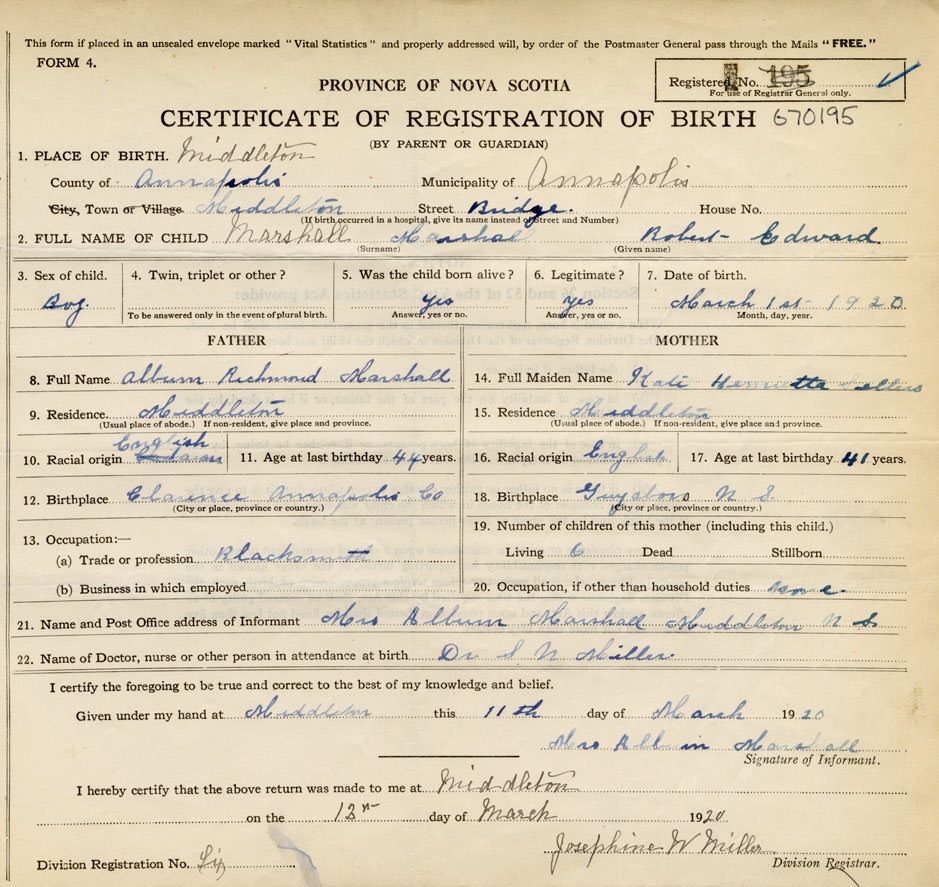 This form if placed in an unsealed envelope marked "Vital Statistics" and properly addressed will, by order of the Postmaster General pass through the Mails "FREE."
FORM 4.
Registered No. 195
For use of Registrar General only.
PROVINCE OF NOVA SCOTIA
CERTIFICATE OF REGISTRATION OF BIRTH 670195
(BY PARENT OR GUARDIAN)
1. PLACE OF BIRTH. Middleton
County of Annapolis Municipality of Annapolis
City, Town or Village Middleton Street Bridge. House No.
(If birth occurred in a hospital, give its name instead of Street and Number)
2. FULL NAME OF CHILD Marshall Marshal Robert Edward
(Surname) (Given name)
3. Sex of child. 4. Twin, triplet or other? 5. Was the child born alive? 6. Legitimate? 7. Date of birth.
Boy. yes yes March 1st 1920
To be answered only in the event of plural birth. Answer, yes or no. Answer, yes or no. Month, day, year.
FATHER MOTHER
8. Full Name Album Richmond Marshall 14. Full Maiden Name Kate Henrietta Sellers
9. Residence Middleton 15. Residence Middleton
(Usual place of abode.) If non-resident, give place and province. (Usual place of abode.) If non-resident, give place and province.
English
10. Racial origin 11. Age at last birthday 44 years. 16. Racial origin English 17. Age at last birthday 41 years.
12. Birthplace Clarence Annapolis Co 18. Birthplace Guysboro N S.
(City or place, province or country.) (City or place, province or country.)
19. Number of children of this mother (including this child.)
13. Occupation:—
Living 6 Dead Stillborn
(a) Trade or profession Blacksmith
(b) Business in which employed 20. Occupation, if other than household duties none.
21. Name and Post Office address of Informant Mrs Album Marshall Middleton N S
22. Name of Doctor, nurse or other person in attendance at birth Dr S N Miller.
I certify the foregoing to be true and correct to the best of my knowledge and belief.
Given under my hand at Middleton this 11th day of March 1920
Mrs Album Marshall
Signature of Informant.
I hereby certify that the above return was made to me at Middleton
on the 12th day of March 1920
Josephine W Miller
Division Registration No. Six Division Registrar.